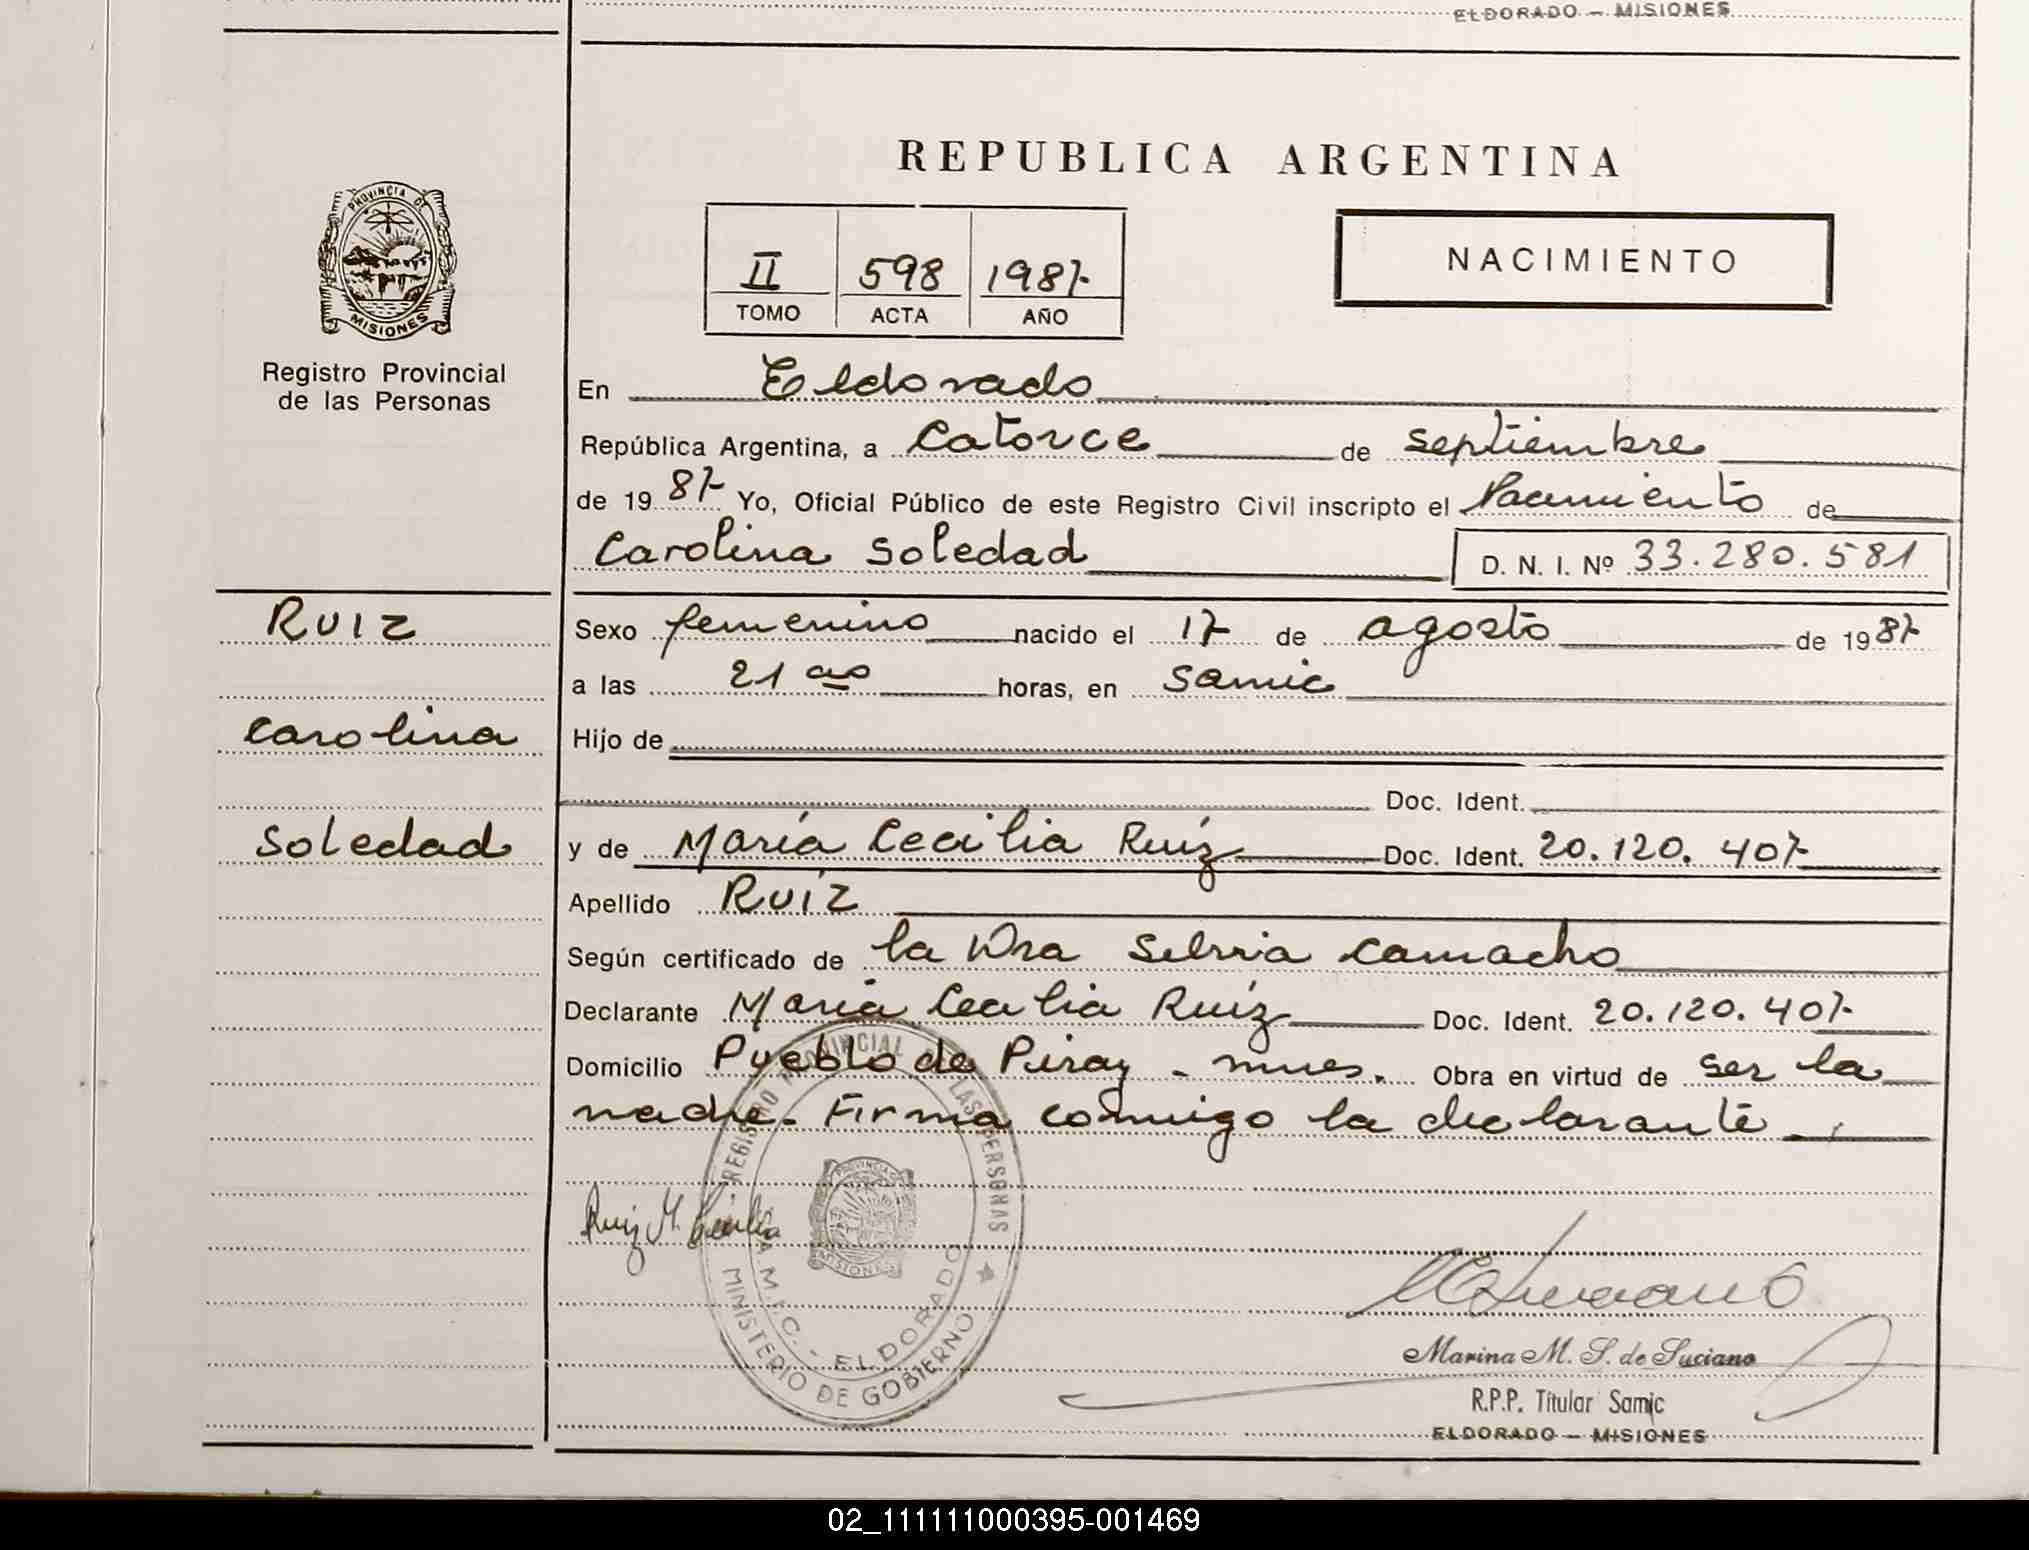 ELDORADO — MISIONES
PROVINCIA DE
MISIONES
Registro Provincial
de las Personas
REPUBLICA ARGENTINA
II 598 1987
TOMO ACTA AÑO
NACIMIENTO
En Eldorado
República Argentina, a Catorce de septiembre
de 1987 Yo, Oficial Público de este Registro Civil inscripto el Nacimiento de
Carolina Soledad D. N. I. Nº 33.280.581
Ruiz
Carolina
Soledad
Sexo femenino nacido el 17 de agosto de 1987
a las 21 horas, en Samic
Hijo de
Doc. Ident.
y de María Cecilia Ruíz Doc. Ident. 20.120.407
Apellido Ruíz
Según certificado de la Dra Silvia Camacho
Declarante María Cecilia Ruíz Doc. Ident. 20.120.407
Domicilio Pueblo de Piray - mnes. Obra en virtud de ser la
madre. Firma conmigo la declarante
Ruiz M. Cecilia
REGISTRO PROVINCIAL DE LAS PERSONAS
MINISTERIO DE GOBIERNO
S.A.M.I.C. - ELDORADO
PROVINCIA DE
MISIONES
Marina M. S. de Luciano
R.P.P. Titular Samic
ELDORADO — MISIONES
02_111111000395-001469